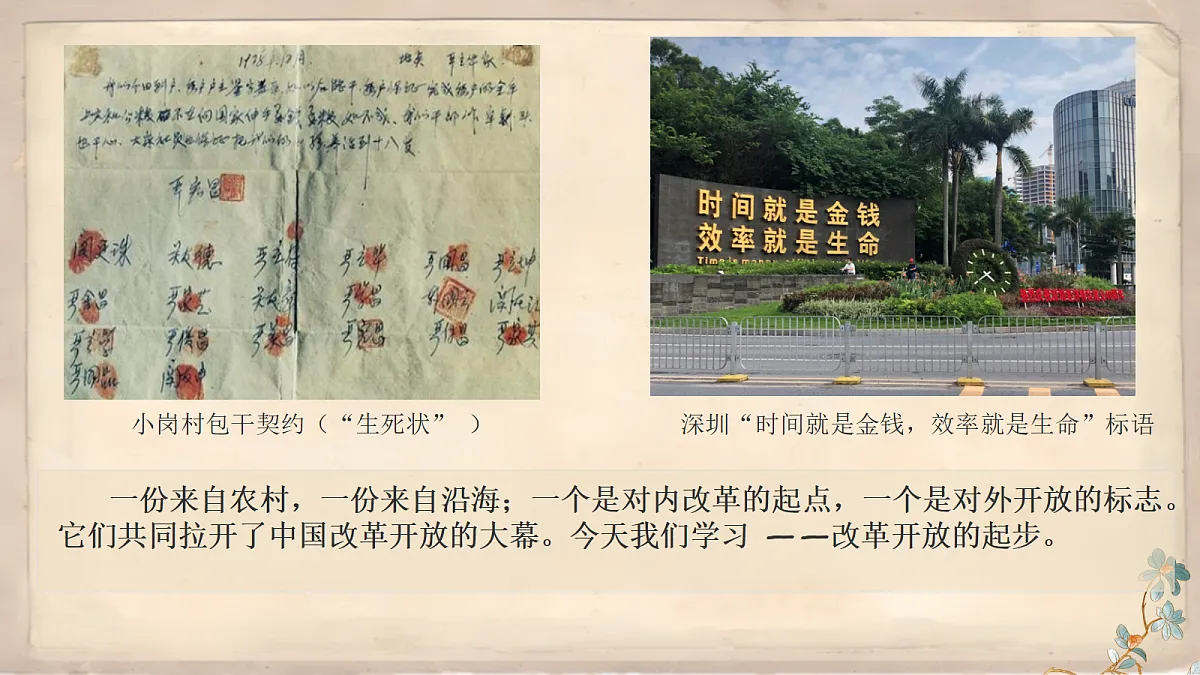 1978.12月. 地点 严立华家
我们分田到户，每户户主签字盖章，如以后能干，每户保证完成每户的全年
上交和公粮不在向国家伸手要钱要粮，如不成，我们干部作牢刹头
也干心，大家社员也保证把我们的小孩养活到十八岁
严宏昌
关友德 严立华 严国昌
严金昌
关友申
时间就是金钱
效率就是生命
Time is money
小岗村包干契约（“生死状” ）
深圳“时间就是金钱，效率就是生命”标语
一份来自农村，一份来自沿海；一个是对内改革的起点，一个是对外开放的标志。
它们共同拉开了中国改革开放的大幕。今天我们学习 ——改革开放的起步。